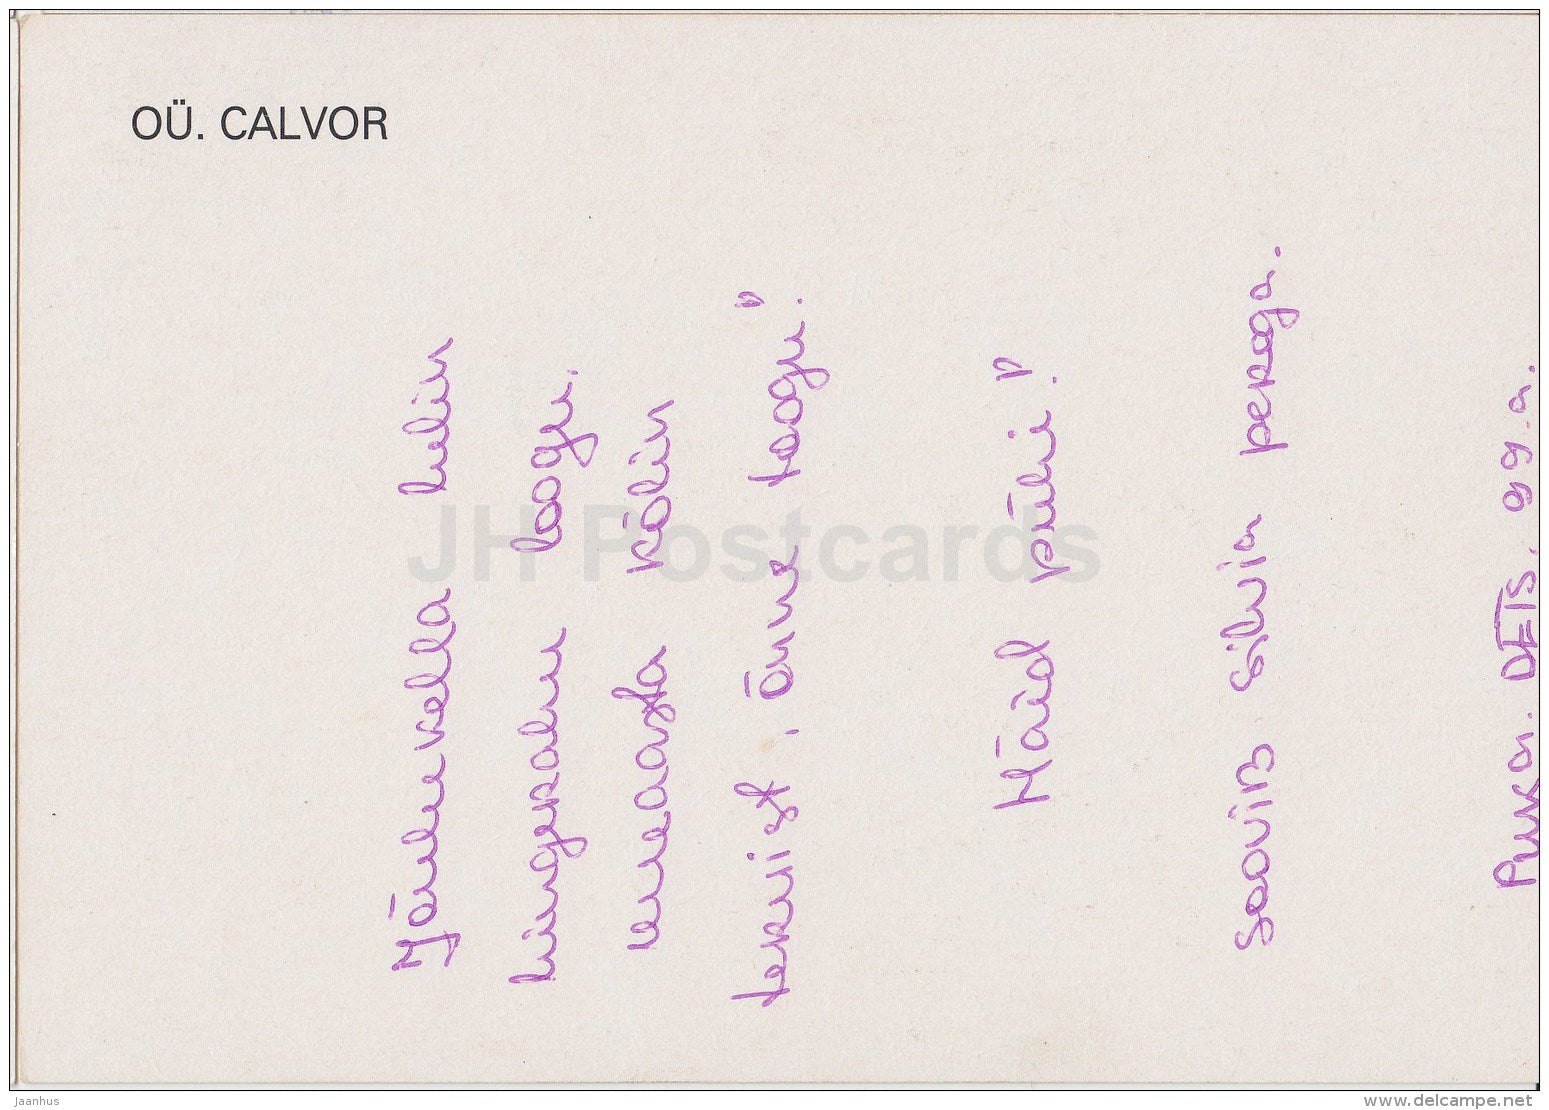 OÜ. CALVOR
Jōulukella helin
hingerahu toogu.
uueaasta kōlin
tervist, ōnne toogu!
Häid pühi!
soovib Silvia perega.
Puka. DETS. 99.a.
JH Postcards
Jaanhus
www.delcampe.net